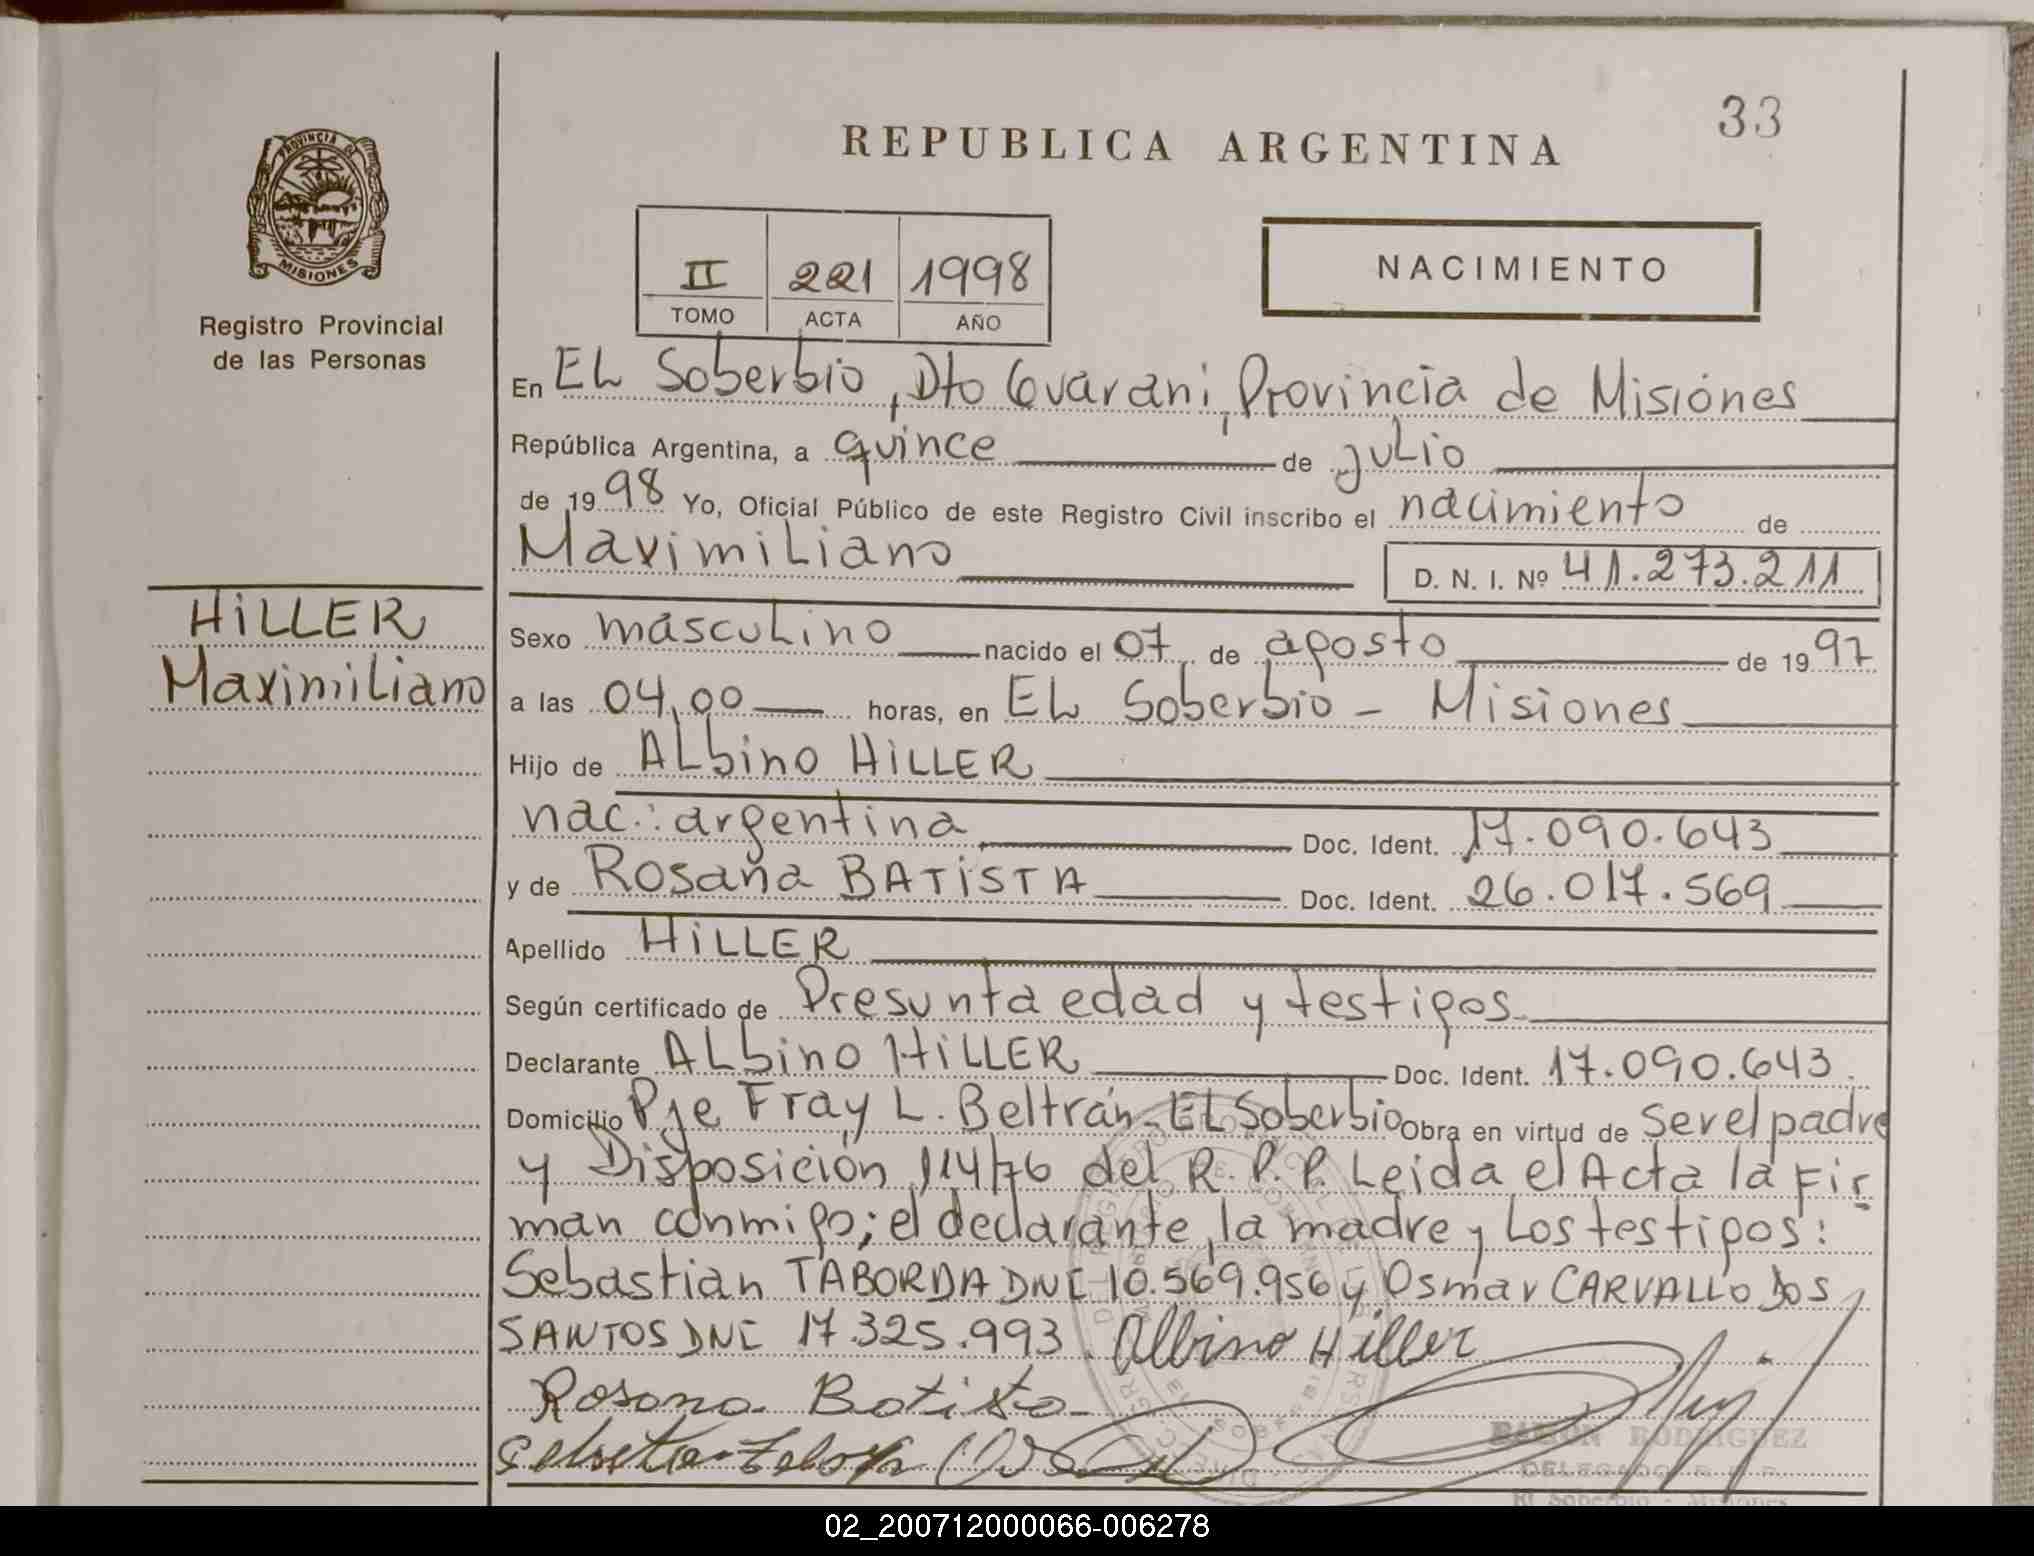 33
REPUBLICA ARGENTINA
PROVINCIA DE
MISIONES
Registro Provincial
de las Personas
II 221 1998
TOMO ACTA AÑO
NACIMIENTO
En EL Soberbio, Dto Guarani, Provincia de Misiones
República Argentina, a quince de julio
de 1998 Yo, Oficial Público de este Registro Civil inscribo el nacimiento de
Maximiliano D. N. I. Nº 41.273.211
HiLLER
Maximiliano
Sexo masculino nacido el 07 de agosto de 1997
a las 04,00 horas, en EL Soberbio - Misiones
Hijo de ALbino HiLLER
nac.: argentina Doc. Ident. 17.090.643
y de Rosana BATiSTA Doc. Ident. 26.017.569
Apellido HiLLER
Según certificado de Presunta edad y testigos
Declarante ALbino HiLLER Doc. Ident. 17.090.643
Domicilio Pje Fray L. Beltrán-EL Soberbio Obra en virtud de Ser el padre
y Disposición 114/76 del R. P. P. Leida el Acta la Fir
man conmigo; el declarante, la madre y Los testigos:
Sebastian TABORDA DNI 10.569.956 y Osmar CARVALLO DOS
SANTOS DNI 17.325.993 Albino Hiller
Rosana Batista
RAMON RODRIGUEZ
DELEGADO R. P. P.
El Soberbio - Misiones
02_200712000066-006278